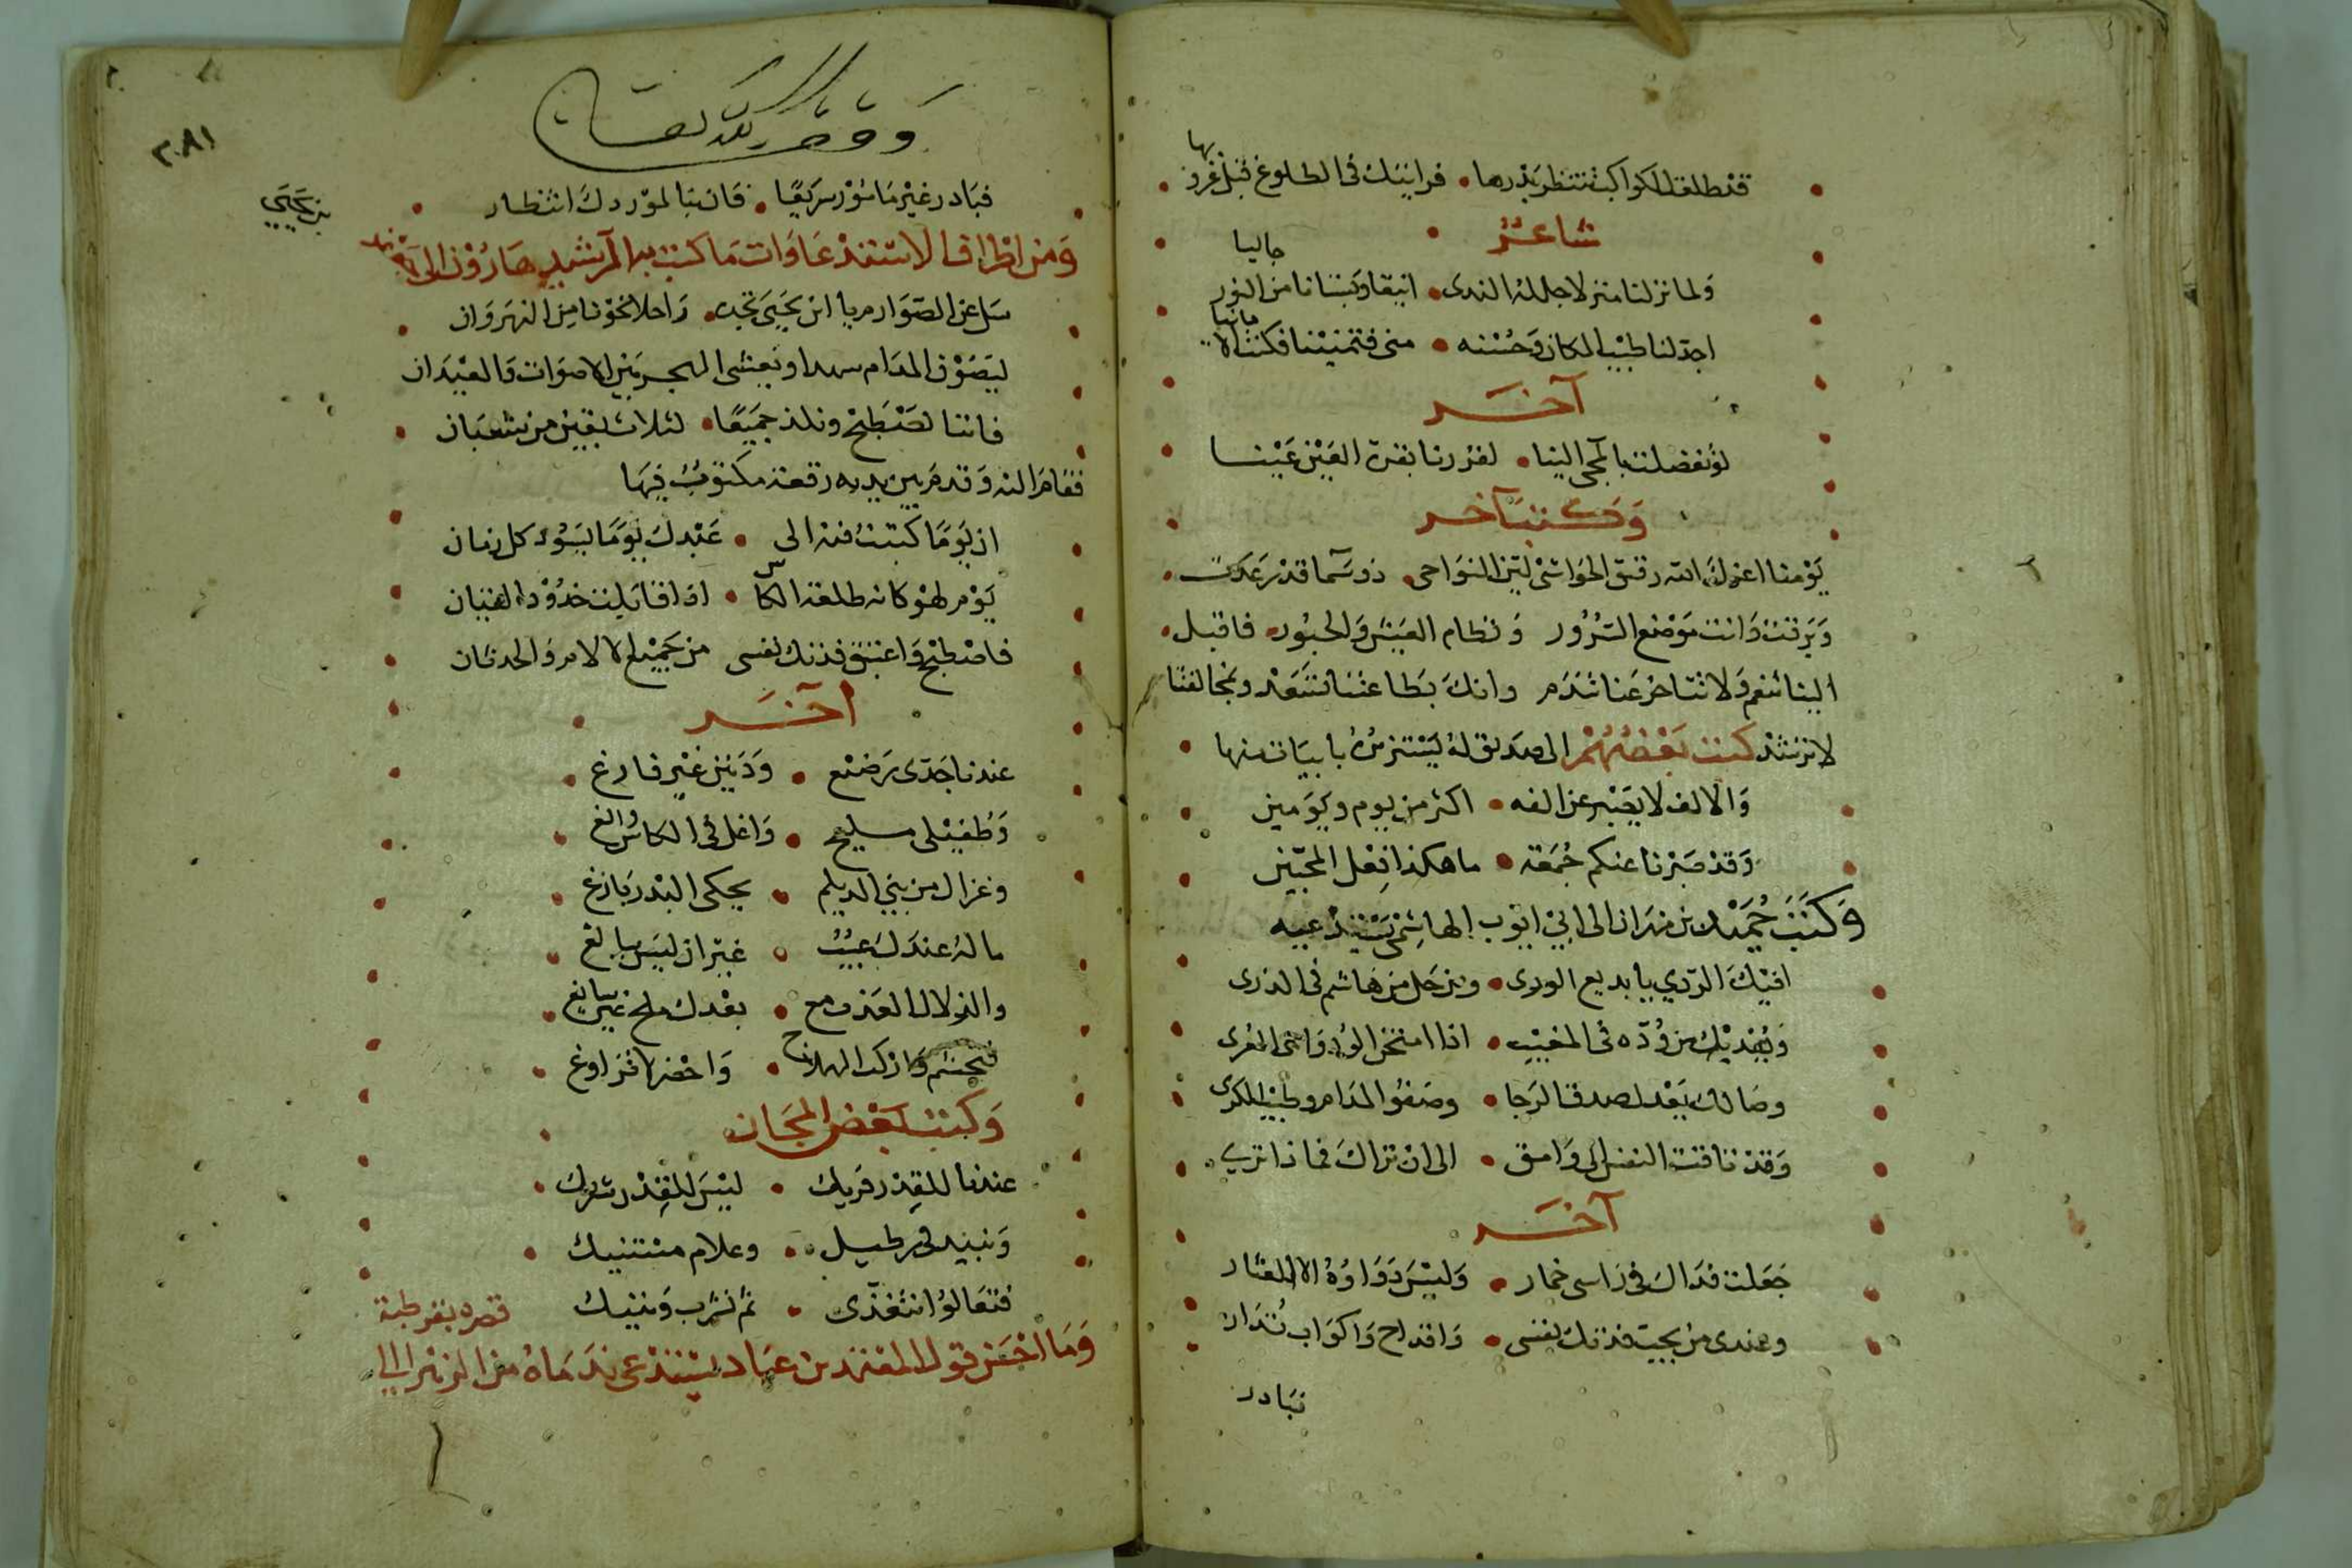 قد طلعت الكواكب تنتظر بدرها • فرأيتك في الطلوع قبل غروبها
شاعر
ولما نزلنا منزلا جاله الندى • انيقا وبستانا من النور حاليا
اجد لنا طيب المكان وحسنه • منى فتمنينا فكنت الامانيا
آخر
لو تفضلت بالمجي الينا • لقررنا بقرة العين عينا
وكتب آخر
يومنا اعزك الله رقيق الحواشي لين النواحي • ذو سما قد رعدت •
وبرقت وانت موضع السرور ونظام العيش والحبور • فاقبل •
الينا تنعم ولا تتاخر عنا تندم وانك بطاعتنا تسعد وبمخالفتنا
لا ترشد كتب بعضهم الى صديق له يستزيره بابيات منها
والالف لا يصبر عن الفه • اكثر من يوم ويومين
وقد صبرنا عنكم جمعة • ما هكذا فعل المحبين
وكتب حميد بن مهران الى ابي ايوب الهاشمي يستدعيه
افيك الردي يا بديع الورى • ومن حل من هاشم في الذرى
ويفديك من وده في المغيب • اذا امتحن الود واهي العرى
وصالك يعدل صدق الرجا • وصفو المدام وطيب الكرى
وقد تاقت النفس الى وامق • الى ان تراك فماذا ترى
آخر
جعلت فداك في راسي خمار • وليس دواوه الا العقار
وعندي من يحب فدتك نفسي • واقداح واكواب تدار
فبادر
٣٠٨١
فبادر غير مامور سريعا • فان بنا لموردك انتظار
ومن اظراف الاستدعاوات ما كتب به الرشيد هارون الى جعفر
بن يحيي
سل عن الصوارم يا ابن يحيى تجد • راحلا نحونا من النهروان
فاننا نصطبح ونلذ جميعا • لثلاث بقين من شعبان
فقام اليه وقدم بين يديه رقعة مكتوب فيها
ان يوما كتبت فيه الى • عبدك يوما يسود كل زمان
يوم لهو كان طلعة الكاس • اذا قابلت خدود القيان
فاصطبح واغتبق فدتك نفسي من جميع الالام والحدثان
آخر
عندنا جدي رضيع • ودنين غير فارغ
وطفيلي مليح • واغل في الكاس والغ
وغزال من بني الديلم • يحكي البدر بازغ
ما له عندك عيب • غير ان ليس ببالغ
والزلال العذب مع • بعدك ملح غير سايغ
فتجشم واركب الهملاج • واحضر لا تراوغ
وكتب بعض المجان
عندنا للقدر فريك • ليس للقدر شريك
ونبيد في رطيل • وغلام مستنيك
فتعالوا نتغدى • ثم نشرب وننيك
وما احسن قول المعتمد بن عباد يستدعي ندماه من الزهرا الى
قصره بقرطبة